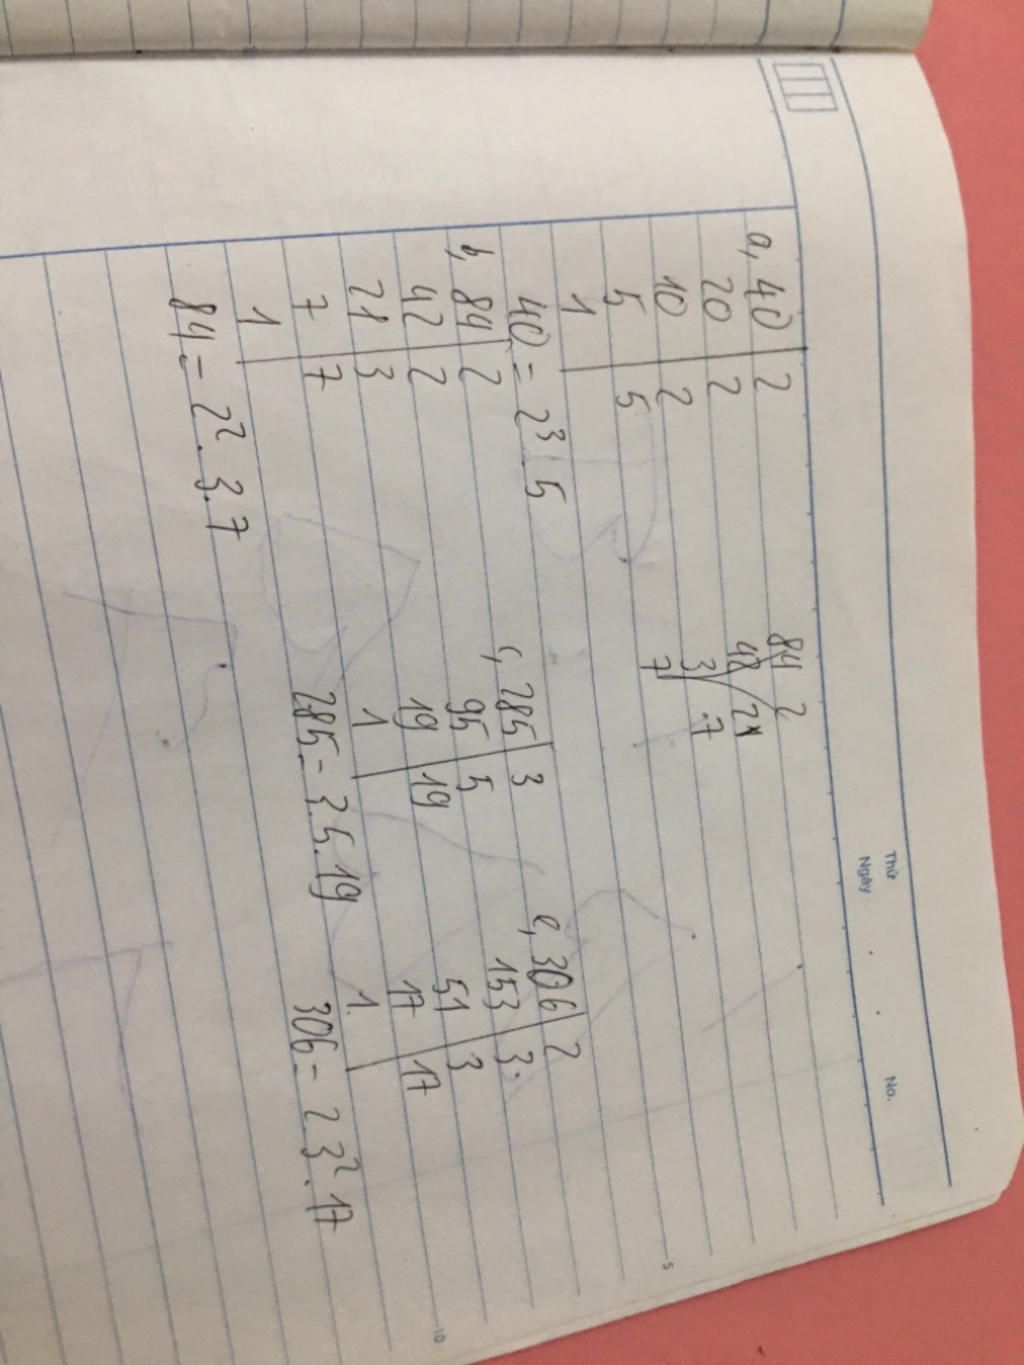 Thứ
Ngày
No.
a, 40 | 2
20 | 2
10 | 2
5 | 5
1
40 = 2³. 5
84 2
42 2
3
7 7
b, 84 | 2
42 | 2
21 | 3
7 | 7
1
84 = 2². 3.7
c, 285 | 3
95 | 5
19 | 19
1
285 = 3.5.19
e, 306 | 2
153 | 3.
51 | 3
17 | 17
1.
306 = 2 3². 17
5
10